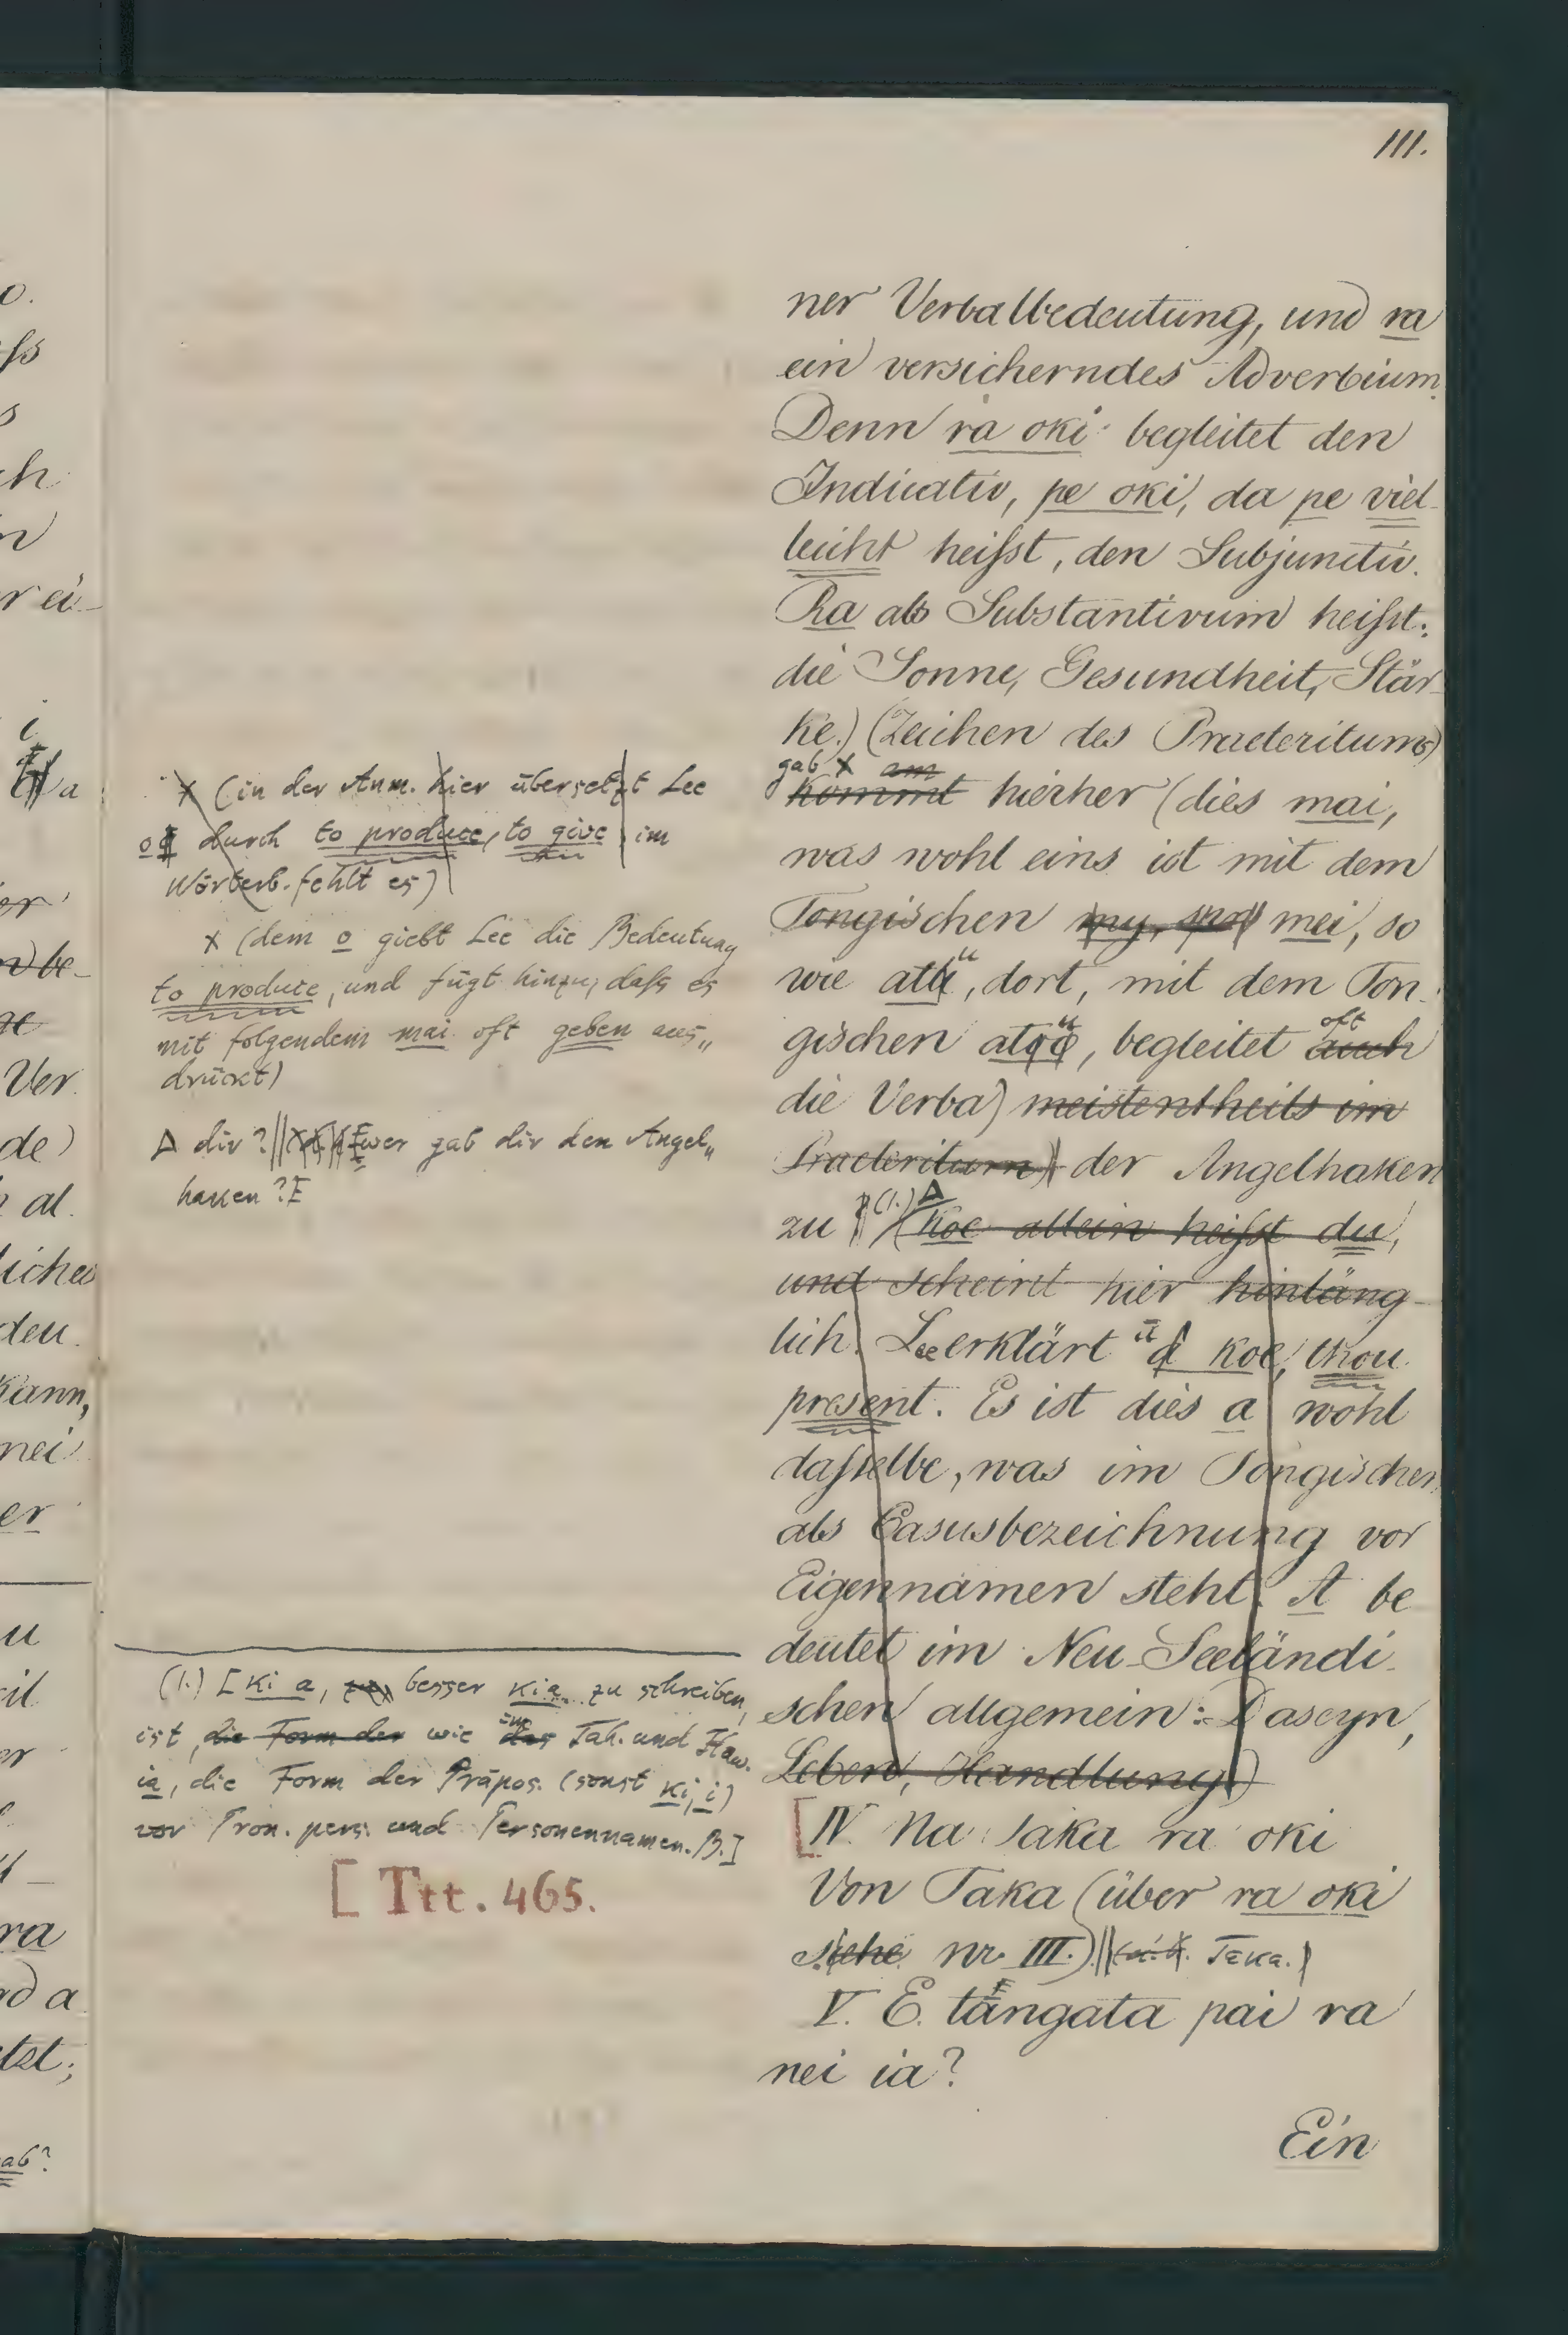 111.
ner Verbalbedeutung, und ra
ein versicherndes Adverbium.
Denn ra oki begleitet den
Indicativ, pe oki, da pe viel-
leicht heifst, den Subjunctiv.
Ra als Substantivum heifst:
die Sonne, Gesundheit, Stär-
ke.) (Zeichen des Praeteritums)
gab x am
kommt hierher (dies mai,
was wohl eins ist mit dem
Tongischen my, mei, so
wie atu, dort, mit dem Ton-
gischen atu, begleitet auch oft
die Verba) meistentheils im
Praeteritum) der Angelhaken
zu (1.) Δ (koe allein heifst du,
und scheint hier hinläng-
lich. Lee erklärt a koe, thou
present. Es ist dies a wohl
dafselbe, was im Tongischen
als Casusbezeichnung vor
Eigennamen steht. A be
deutet im Neu-Seeländi-
schen allgemein: Daseyn,
Leben, Handlung.)
[IV. Na Taka ra oki
Von Taka (über ra oki
siehe nr. III.) Taka.)
V. E. tangata pai ra
nei ia?
Ein
x (in der Anm. hier übersetzt Lee
o durch to produce, to give im
Wörterb. fehlt es)
x (dem o giebt Lee die Bedeutung
to produce, und fügt hinzu, dafs es
mit folgendem mai oft geben aus„
drückt)
Δ dir? wer gab dir den Angel„
haken?
(1.) [Ki a, besser kia zu schreiben,
ist, die Form der wie das im Tah. und Haw.
ia, die Form der Präpos. (sonst ki, i)
vor Pron. pers. und Personennamen. B.]
[Ttt. 465.
o.
fs
s
ch
n
r ei-
i
a
er
be-
Ver
de)
al.
liches
deu
kann,
nei
er
u
ra
a
tzt;
gab?